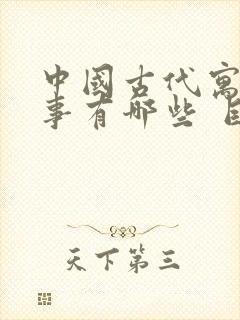 中國古代寓
事有哪些
天下第三